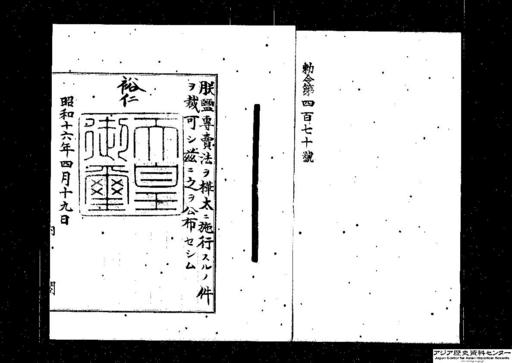 勅令第四百七十號
朕鹽專賣法ヲ樺太ニ施行スルノ件
ヲ裁可シ茲ニ之ヲ公布セシム
裕仁
天皇御璽
昭和十六年四月十九日
内 閣
アジア歴史資料センター
Japan Center for Asian Historical Records